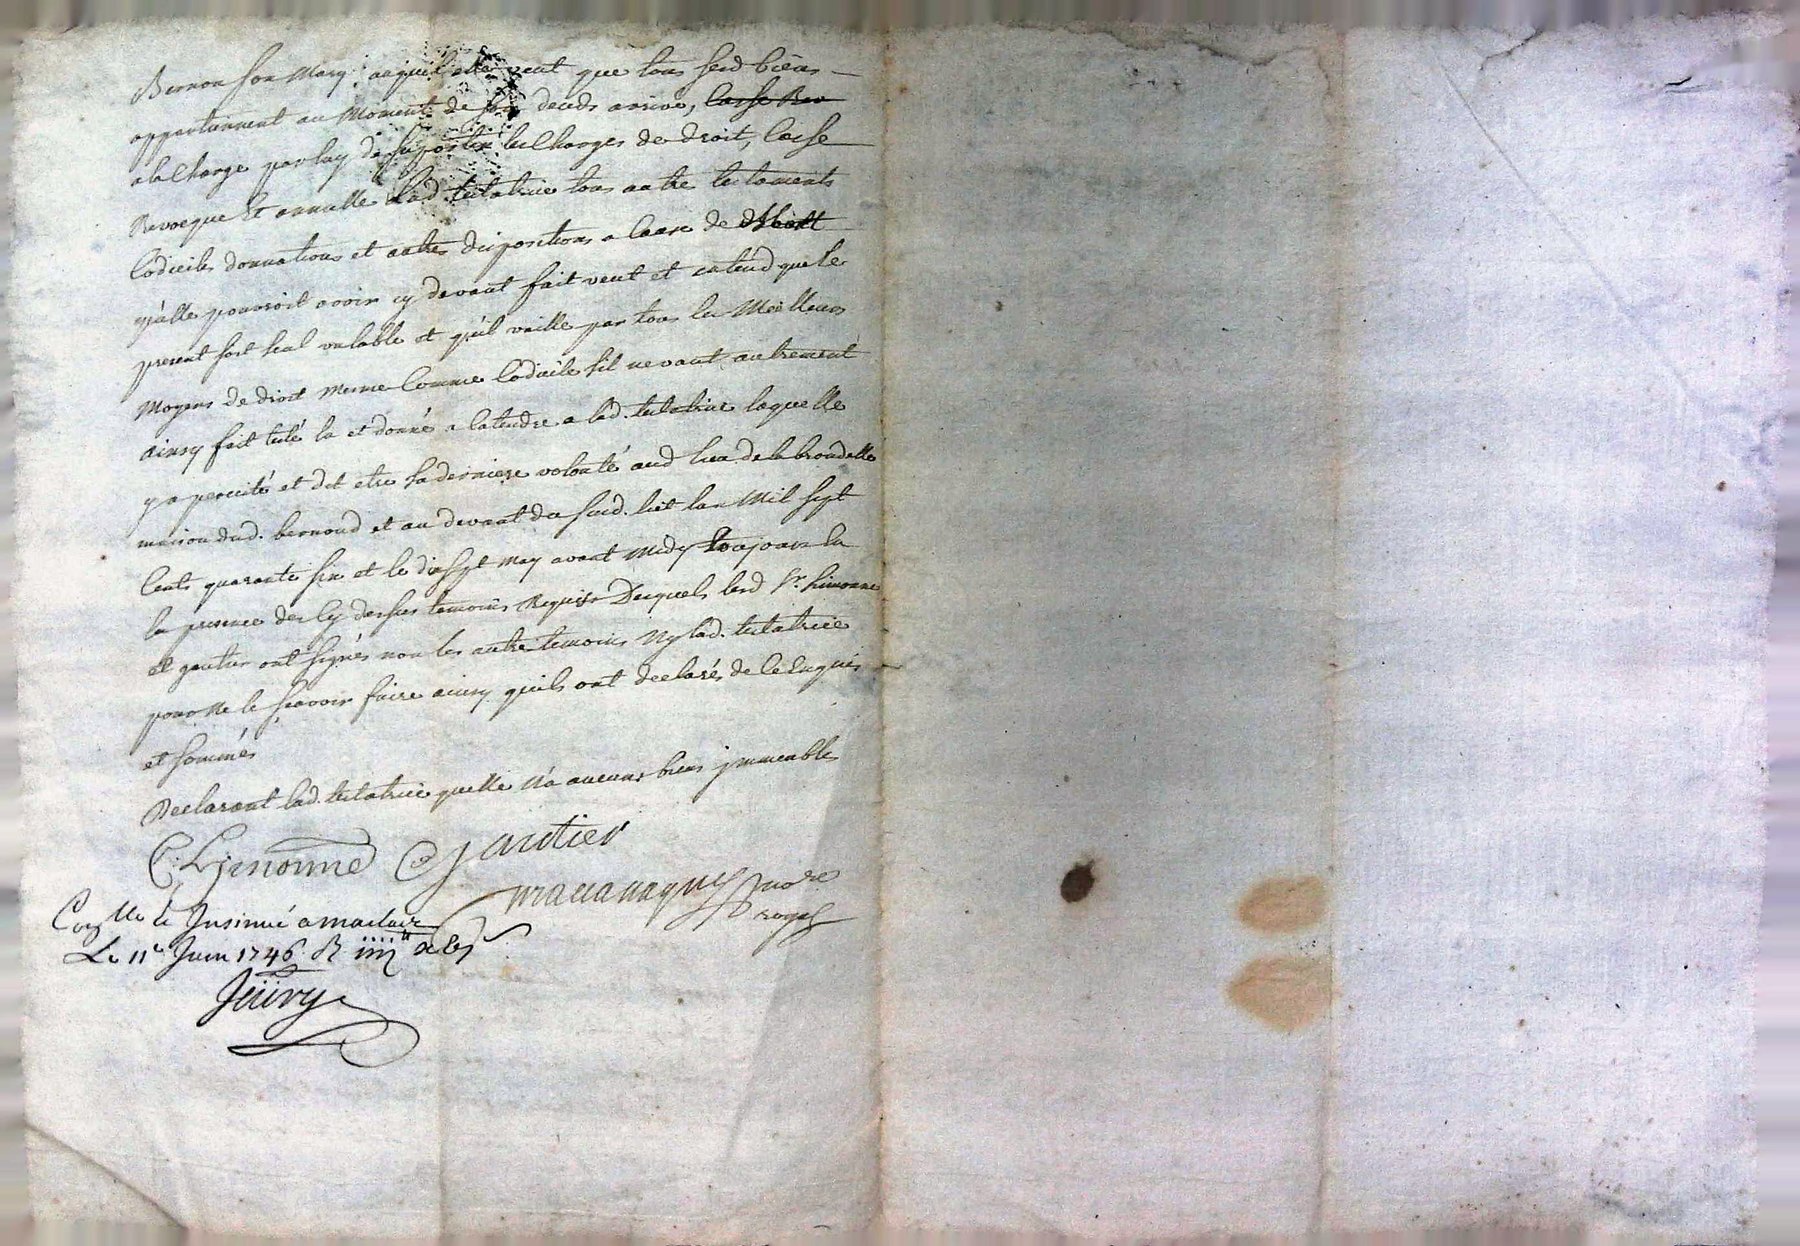 Bernon son Mary auquel elle veut que tous sesd biens
appartiennent au moment de son deceds arrive, casse Rev
a la Charge par luy de suporter les Charges de droit, Casse
Revoque Et annulle lad. testatrice tous autre testaments
Codiciles donnations et autres dispositions a cause de Mort
qu'elle pourroit avoir cy devant fait veut et entend que le
present soit seul valable et qu'il vaille par tous les Meilleurs
Moyens de droit meme Comme Codicile s'il ne vaut autrement
ainsy fait leu et donné a entendre a lad. testatrice laquelle
y a percisté et dit etre sa derniere volonté aud lieu de la
maison dud. bernond et au devant du susd. lict l'an Mil sept
Cents quarante six et le dixsept may avant midy toujours En
la presence des Cy dessus temoins Requis Desquels lesd Sr. Limonne
et gautier ont signés non les autre temoins Ny lad. testatrice
pour Ne le scavoir faire ainsy quils ont declarés de ce Enquis
et sommés
Declarant lad. testatrice quelle N'a aucuns biens jmmeuble
C. Limonne Gautier
nore
royal
Con lle & Insinué a
Le 11e Juin 1746. R